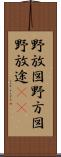 野放図野方図
野放途